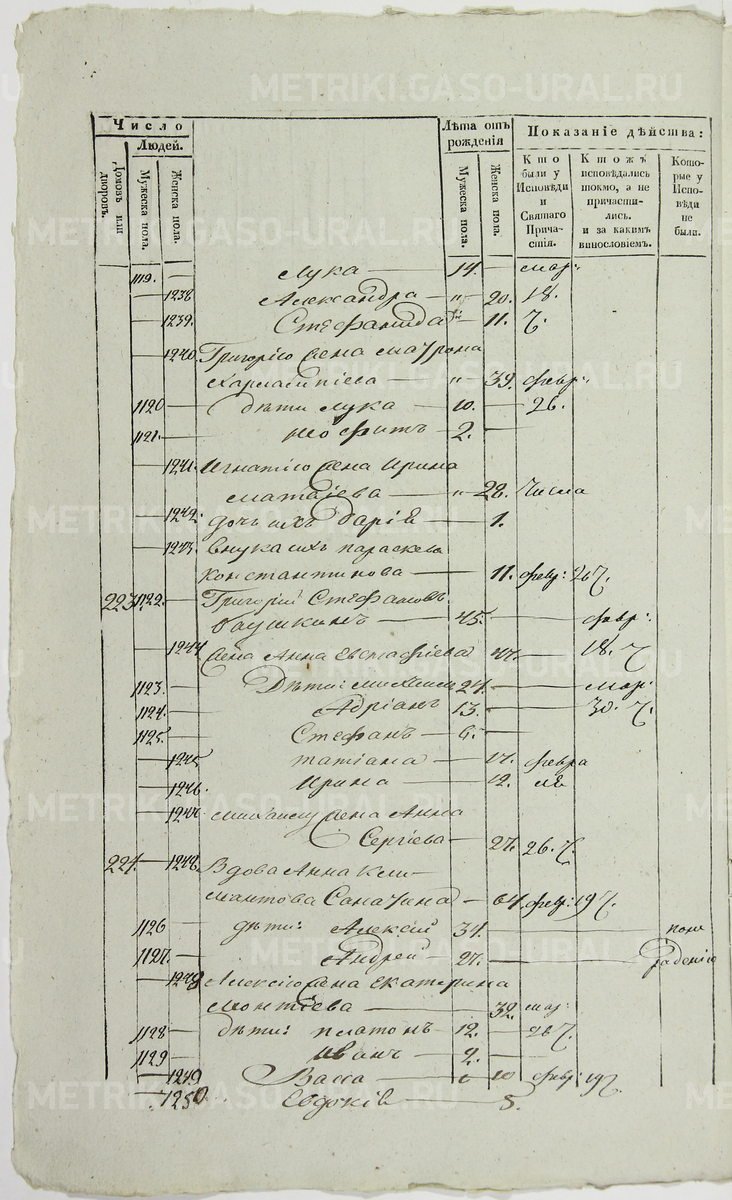 METRIKI.GASO-URAL.RU
Число
Людей.
Домовъ или дворовъ.
Мужеска пола.
Женска пола.
Лѣта отъ рожденія
Мужеска пола.
Женска пола.
Показаніе дѣйства:
Кто были у Исповѣди и Святаго Причастія.
Кто жъ исповѣдались токмо, а не причастились. и за какимъ винословіемъ.
Которые у Исповѣди не были.
1119. Лука 14. мар:
1238 Александра 20. 18.
1239. Стефанида 11. ч.
1240. Григорію жена Маѵрона
Харлампіева 39. февр:
1120 дѣти Лука 10. 26.
1121. Неофитъ 2.
1241. Игнатію жена Ирина
Матѳіева 28. числа
1242. дочь ихъ Дарія 1.
1243. внука ихъ Параскева
Константинова 11. февр: 26 ч.
223. 1122. Григорій Стефановъ
45. февр:
1244 жена Анна Евстафіева 47. 18. ч
1123. Дѣти: Михаилъ 24. мар:
1124. Адріанъ 13. 30. ч.
1125. Стефанъ 6.
1245 Татіана 17. февра
1246. Ирина 12. ля
1247 Михаилу жена Анна
Сергіева 27. 26. ч.
224. 1248. Вдова Анна Кли
мантова 64. февр: 19 ч.
1126 дѣти: Алексій 34. по не
1127. Андрей 27. радѣнію
1248 Алексію жена Екатерина
Леонтіева 32. мар:
1128 дѣти: Платонъ 12. 26 ч.
1129 Иванъ 2.
1249 Васса 10 февр: 19 ч.
1250 Евдокія 5.